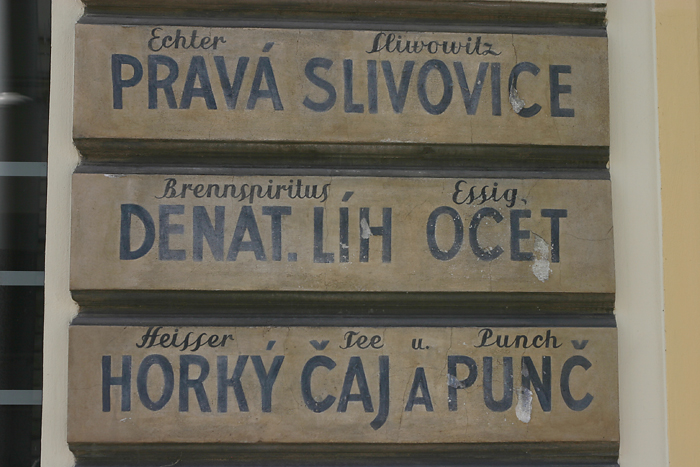 Echter Sliwowitz
PRAVÁ SLIVOVICE
Brennspiritus Essig.
DENAT. LÍH OCET
Heisser Tee u. Punch
HORKÝ ČAJ A PUNČ